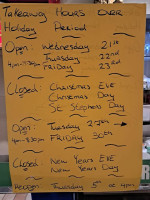 Takeaway Hours Over
Holiday Period
Open: Wednesday 21st
Thursday 22nd
FRIDAY 23rd
Closed: Christmas Eve
Christmas Day
St Stephens Day
Open: Tuesday 27th
FRIDAY 30th
Closed New Years Eve
New Years Day
Reopen Thursday 5th 4pm